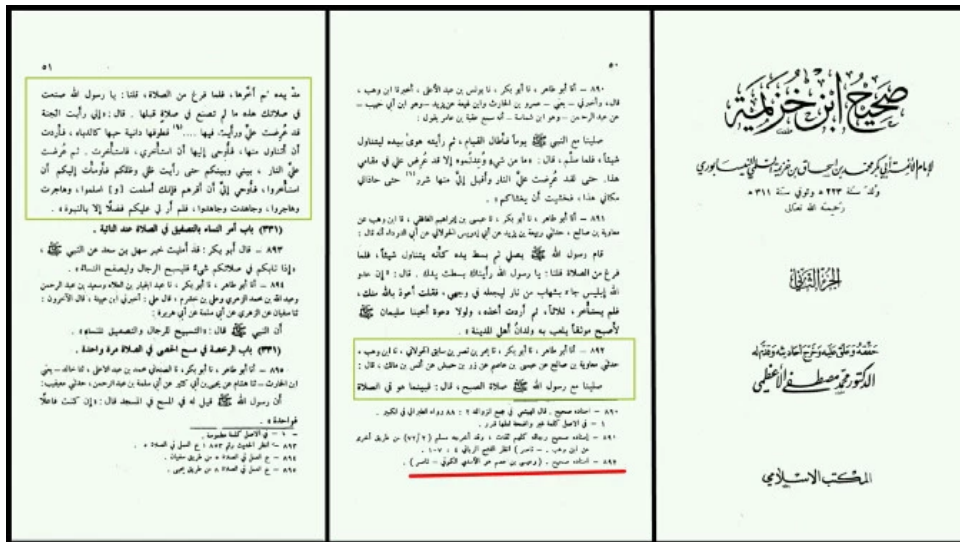 صحيح ابن خزيمة
للإمام الأئمة أبي بكر محمد بن إسحاق بن خزيمة السلمي النيسابوري
ولد سنة ٢٢٣ ه وتوفي سنة ٣١١ ه
رحمه الله تعالى
الجزء الثاني
حققه وعلق عليه وخرج أحاديثه وقدم له
الدكتور محمد مصطفى الأعظمي
المكتب الاسلامي
٥٠
٨٩٠ – أنا أبو طاهر ، نا أبو بكر ، نا يونس بن عبد الأعلى ، أخبرنا ابن وهب ،
قال، وأخبرني – يعني – عمرو بن الحارث وابن لهيعة عن يزيد – وهو ابن أبي حبيب –
عن عبد الرحمن – وهو ابن شماسة – أنه سمع عقبة بن عامر يقول :
صلينا مع النبي ﷺ يوماً فأطال القيام ، ثم رأيته هوى بيده ليتناول
شيئاً ، فلما سلّم ، قال : «ما من شيء وُعدتموه إلا قد عُرض علي في مقامي
هذا. حتى لقد عُرضت عليّ النار وأقبل إليّ منها شرر(١) حتى حاذاني
مكاني هذا، فخشيت أن يغشاكم » .
٨٩١ – أنا أبو طاهر ، نا أبو بكر ، نا عيسى بن إبراهيم الغافقي ، نا ابن وهب عن
معاوية بن صالح ، حدثني ربيعة بن يزيد عن أبي إدريس الخولاني عن أبي الدرداء أنه قال :
قام رسول الله ﷺ يصلي ثم بسط يده كأنّه يتناول شيئاً ، فلما
فرغ من الصلاة قلنا : يا رسول الله رأيناك بسطت يدك . قال : «إن عدو
الله إبليس جاء بشهاب من نار ليجعله في وجهي ، فقلت أعوذ بالله منك،
فلم يستأخر، ثلاثاً، ثم أردت أخذه، ولولا دعوة أخينا سليمان
لأصبح موثقاً يلعب به ولدانُ أهل المدينة» .
٨٩٢ – أنا أبو طاهر ، نا أبو بكر ، نا بحر بن نصر بن سابق الخولاني ، نا ابن وهب ،
حدثني معاوية بن صالح عن عيسى بن عاصم عن زر بن حبيش عن أنس بن مالك ، قال :
صلينا مع رسول الله ﷺ صلاة الصبح، قال : فبينما هو في الصلاة
٨٩٠ – اسناده صحيح . قال الهيثمي في مجمع الزوائد ٢ : ٨٨ رواه الطبراني في الكبير .
١ – في الاصل كلمة غير واضحة لعلها شرر .
٨٩١ – إسناده صحيح رجاله كلهم ثقات ، وقد أخرجه مسلم (٧٢/٢) من طريق أخرى
عن ابن وهب . – ناصر) انظر الفتح الرباني ٤ : ١٠٧ .
٨٩٢ – اسناده صحيح . ( وعيسى بن عاصم هو الأسدي الكوفي – ناصر ) .
٥١
مدّ يده ثم أخّرها، فلما فرغ من الصلاة، قلنا : يا رسول الله صنعت
في صلاتك هذه ما لم تصنع في صلاة قبلها . قال : «إني رأيت الجنة
قد عُرضت عليّ ورأيت فيها ....(١) قطوفها دانية حبها كالدباء، فأردت
أن أتناول منها، فأوحي إليها أن استأخري، فاستأخرت . ثم عُرضت
عليّ النار ، بيني وبينكم حتى رأيت ظلي وظلكم فأومأت إليكم أن
استأخروا، فأوحي إليّ أن أقرهم فإنك أسلمت [و] اسلموا، وهاجرت
وهاجروا، وجاهدت وجاهدوا، فلم أر لي عليكم فضلًا إلا بالنبوة» .
(٣٣١) باب أمر النساء بالتصفيق في الصلاة عند النائبة .
٨٩٣ – قال أبو بكر : قد أمليت خبر سهل بن سعد عن النبي ﷺ ،
«إذا نابكم في صلاتكم شيءٌ فليسبح الرجال وليصفح النساء» .
٨٩٤ – أنا أبو طاهر ، نا أبو بكر ، نا عبد الجبار بن العلاء وسعيد بن عبد الرحمن
وعبد الله بن محمد الزهري وعلي بن خشرم ، قال علي : أخبرني ابن عيينة ، قال الآخرون :
ثنا سفيان عن الزهري عن أبي سلمة عن أبي هريرة :
أن النبي ﷺ قال: «التسبيح للرجال والتصفيق للنساء» .
(٣٣١) باب الرخصة في مسح الحصى في الصلاة مرة واحدة .
٨٩٥ – أنا أبو طاهر ، نا أبو بكر ، نا الصنعاني محمد بن عبد الاعلى ، نا خالد – يعني
ابن الحارث – ثنا هشام عن يحيى بن أبي كثير عن أبي سلمة بن عبد الرحمن، حدثني معيقيب:
أن رسول الله ﷺ قيل له في المسح في المسجد قال: «إن كنت فاعلًا
فواحدة» .
١ – في الاصل كلمة مطموسة .
٨٩٣ – انظر الحديث رقم ٨٥٣ خ العمل في الصلاة
٨٩٤ – خ العمل في الصلاة ٥ من طريق سفيان .
٨٩٥ – خ العمل في الصلاة ٨ من طريق يحيى .